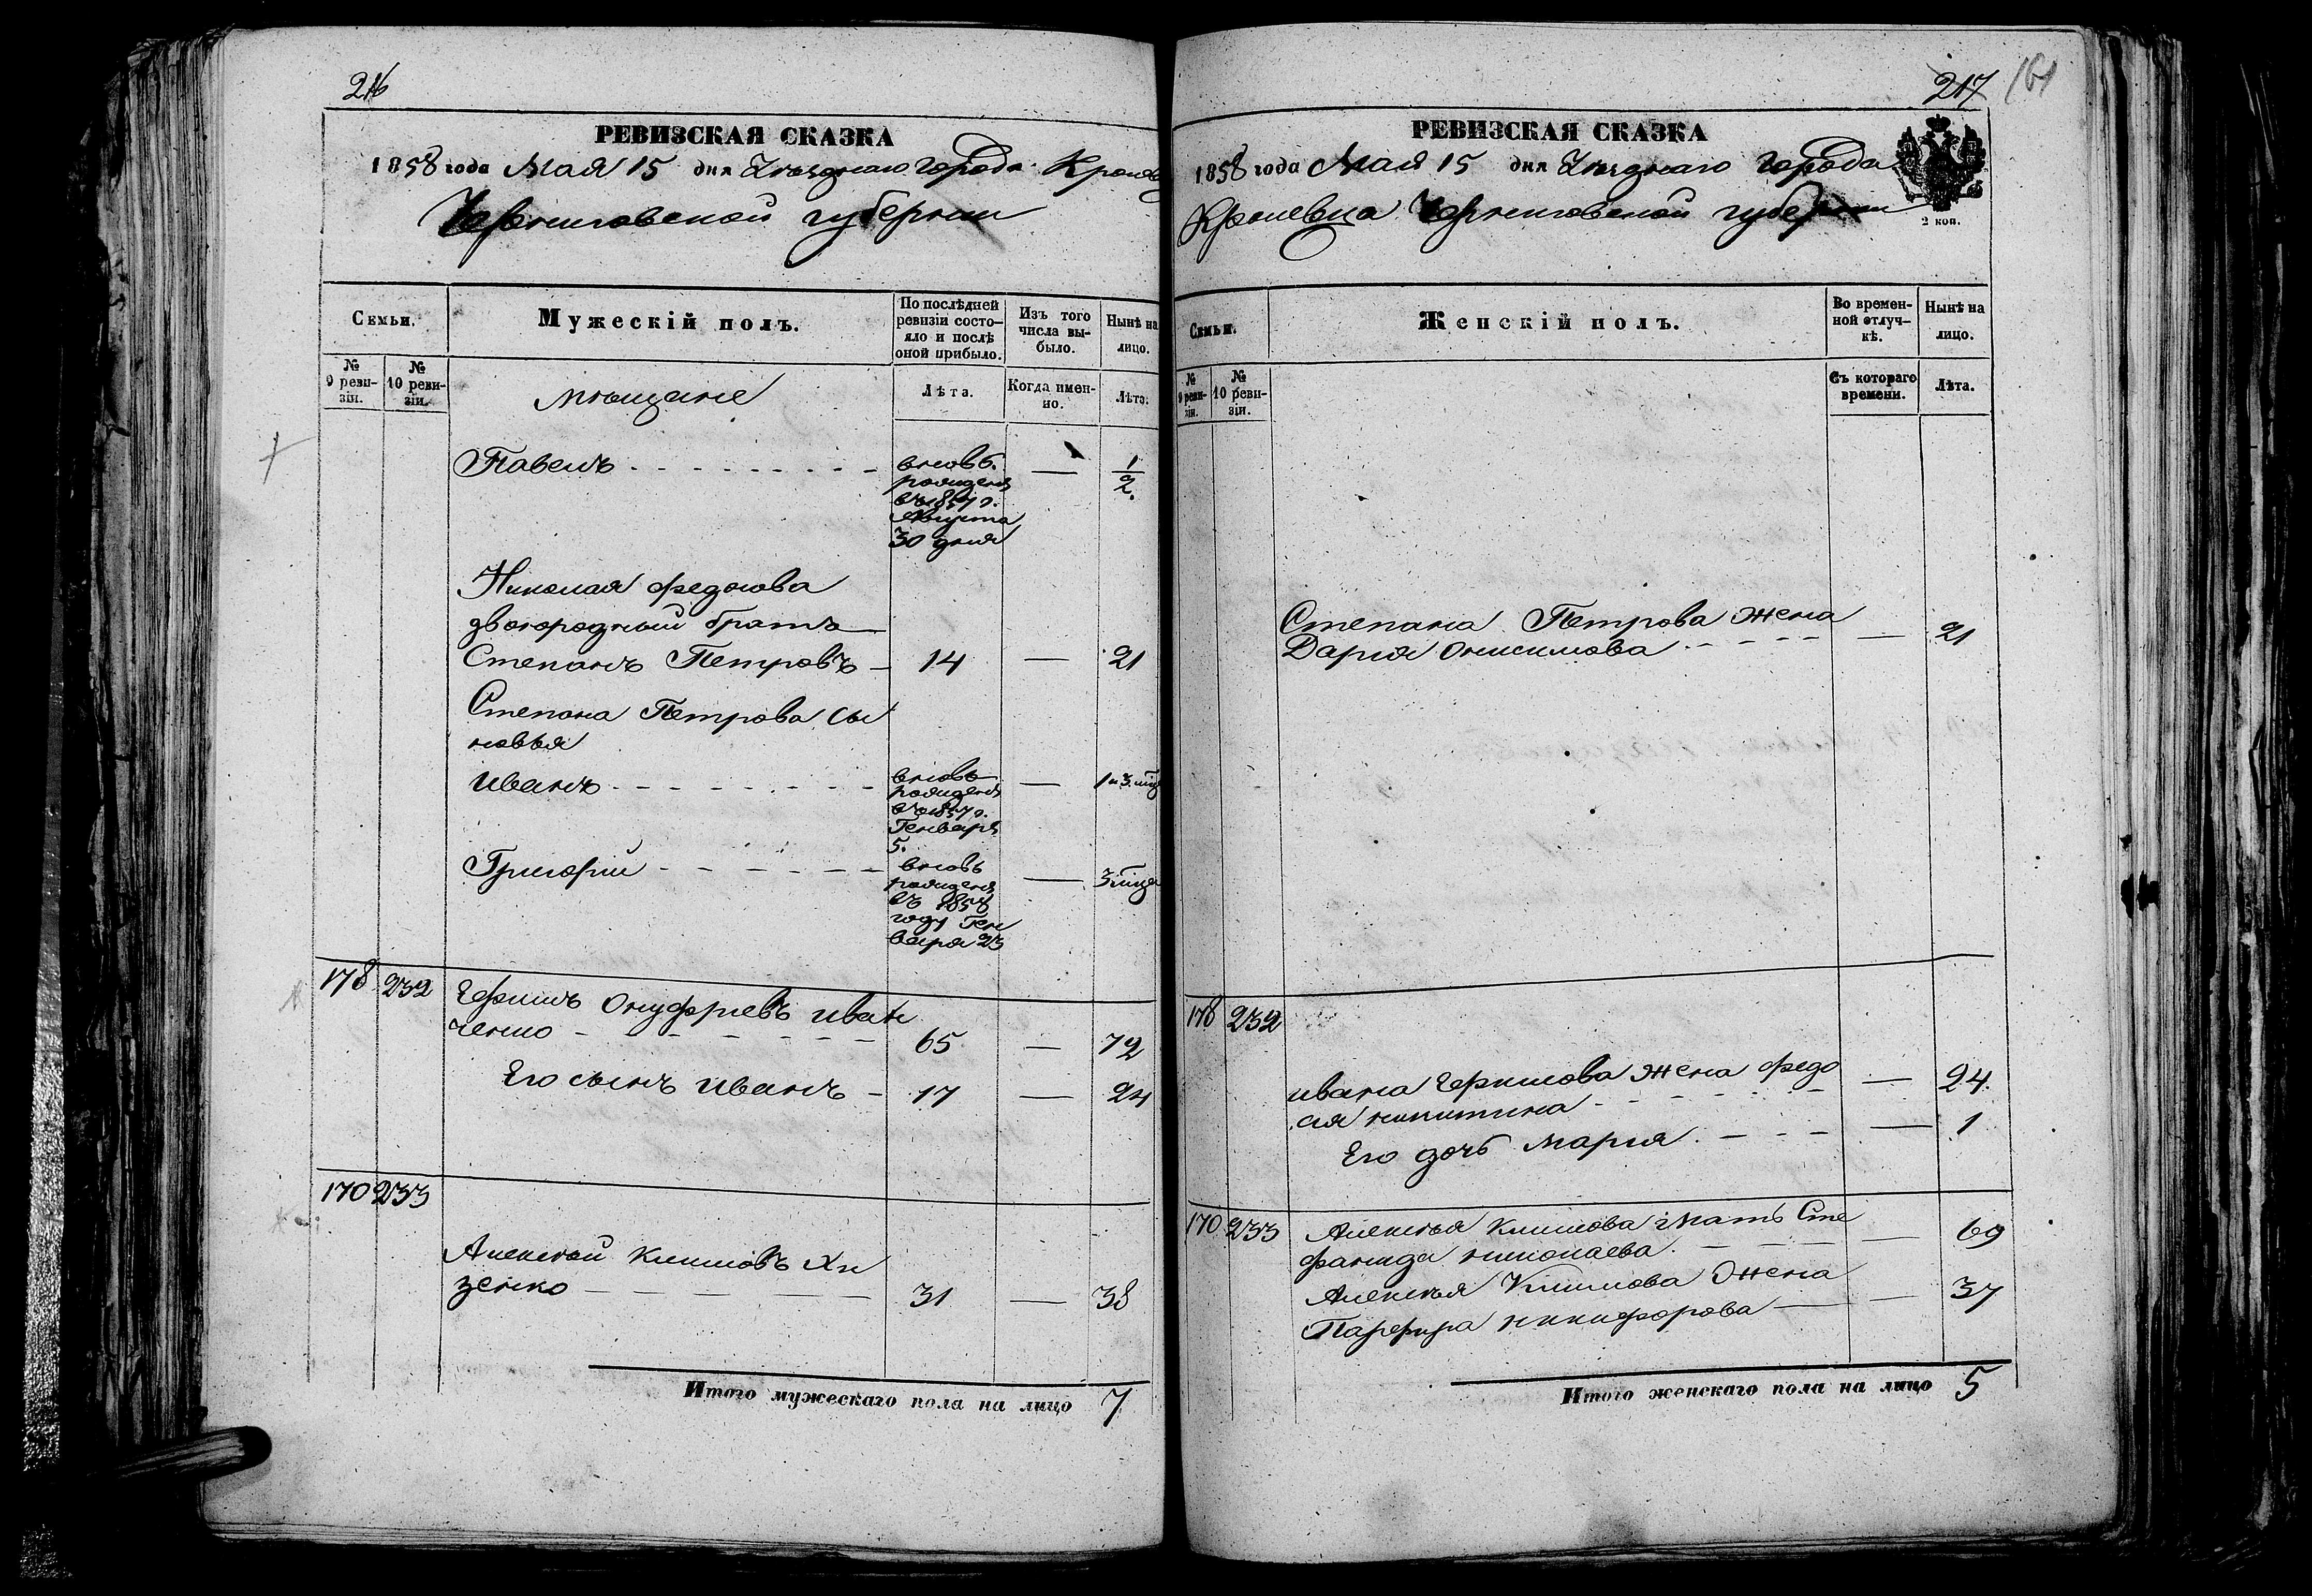 216
РЕВИЗСКАЯ СКАЗКА
1858 года Мая 15 дня Уѣзднаго города Кролев
Черниговской губернии
Семьи.
Мужескій полъ.
По послѣдней ревизіи состояло и послѣ оной прибыло.
Изъ того числа выбыло.
Нынѣ на лицо.
№ 9 ревизіи.
№ 10 ревизіи.
мѣщане
Лѣта.
Когда именно.
Лѣта.
Павелъ
вновь
рожденъ
въ 1857 г.
Августа
30 дня
— 1/2
Николая Федорова
двоюродный братъ
Степанъ Петровъ — 14 — 21
Степана Петрова сы
новья
Иванъ
вновь
рожденъ
въ 1857 г.
Генваря
5.
— 1 и 3 мца
Григорий
вновь
рожденъ
въ 1858
году Ген
варя 23
— 3 мца
178 232 Ефимъ Онуфриевъ Иван
ченко — 65 — 72
Его сынъ Иванъ — 17 — 24
170 233
Алексей Климовъ Хи
зенко — 31 — 38
Итого мужескаго пола на лицо 7
217
161
РЕВИЗСКАЯ СКАЗКА
1858 года Мая 15 дня Уѣзднаго города
Кролевца Черниговской губернии
2 коп.
Семьи.
Женскій полъ.
Во временной отлучкѣ.
Нынѣ на лицо.
№ 9 ревизіи.
№ 10 ревизіи.
Съ котораго времени.
Лѣта.
Степана Петрова жена
Дария Онисимова — 21
178 232
Ивана Ефимова жена Федо
сия Никитина — 24
Его дочь Мария — 1
170 233 Алексея Климова мать Сте
фанида Николаева — 69
Алексея Климова жена
Парфира Никифорова — 37
Итого женскаго пола на лицо 5